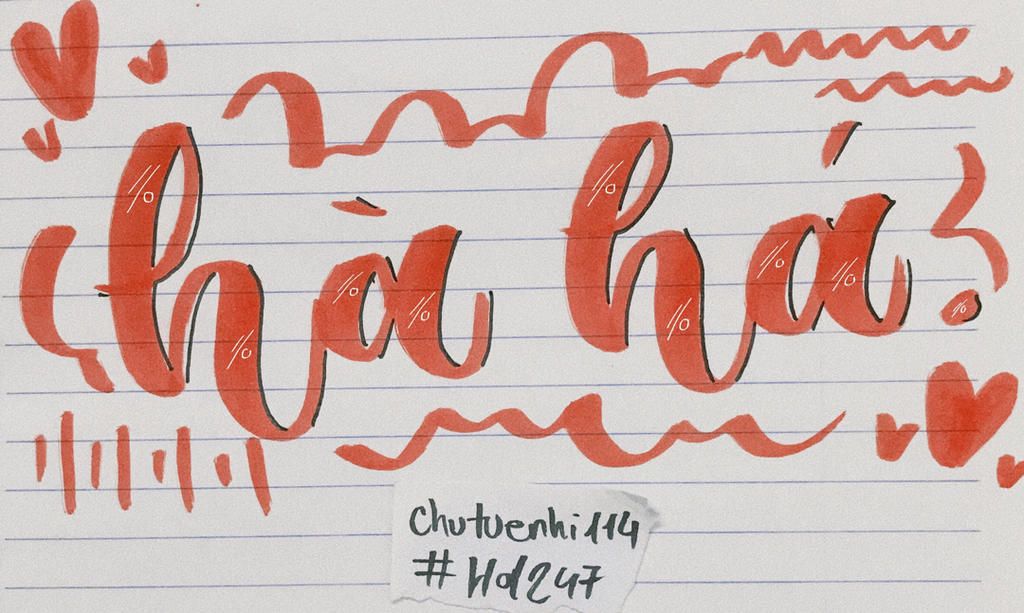 hà há
chutuenhi114
#Hd247